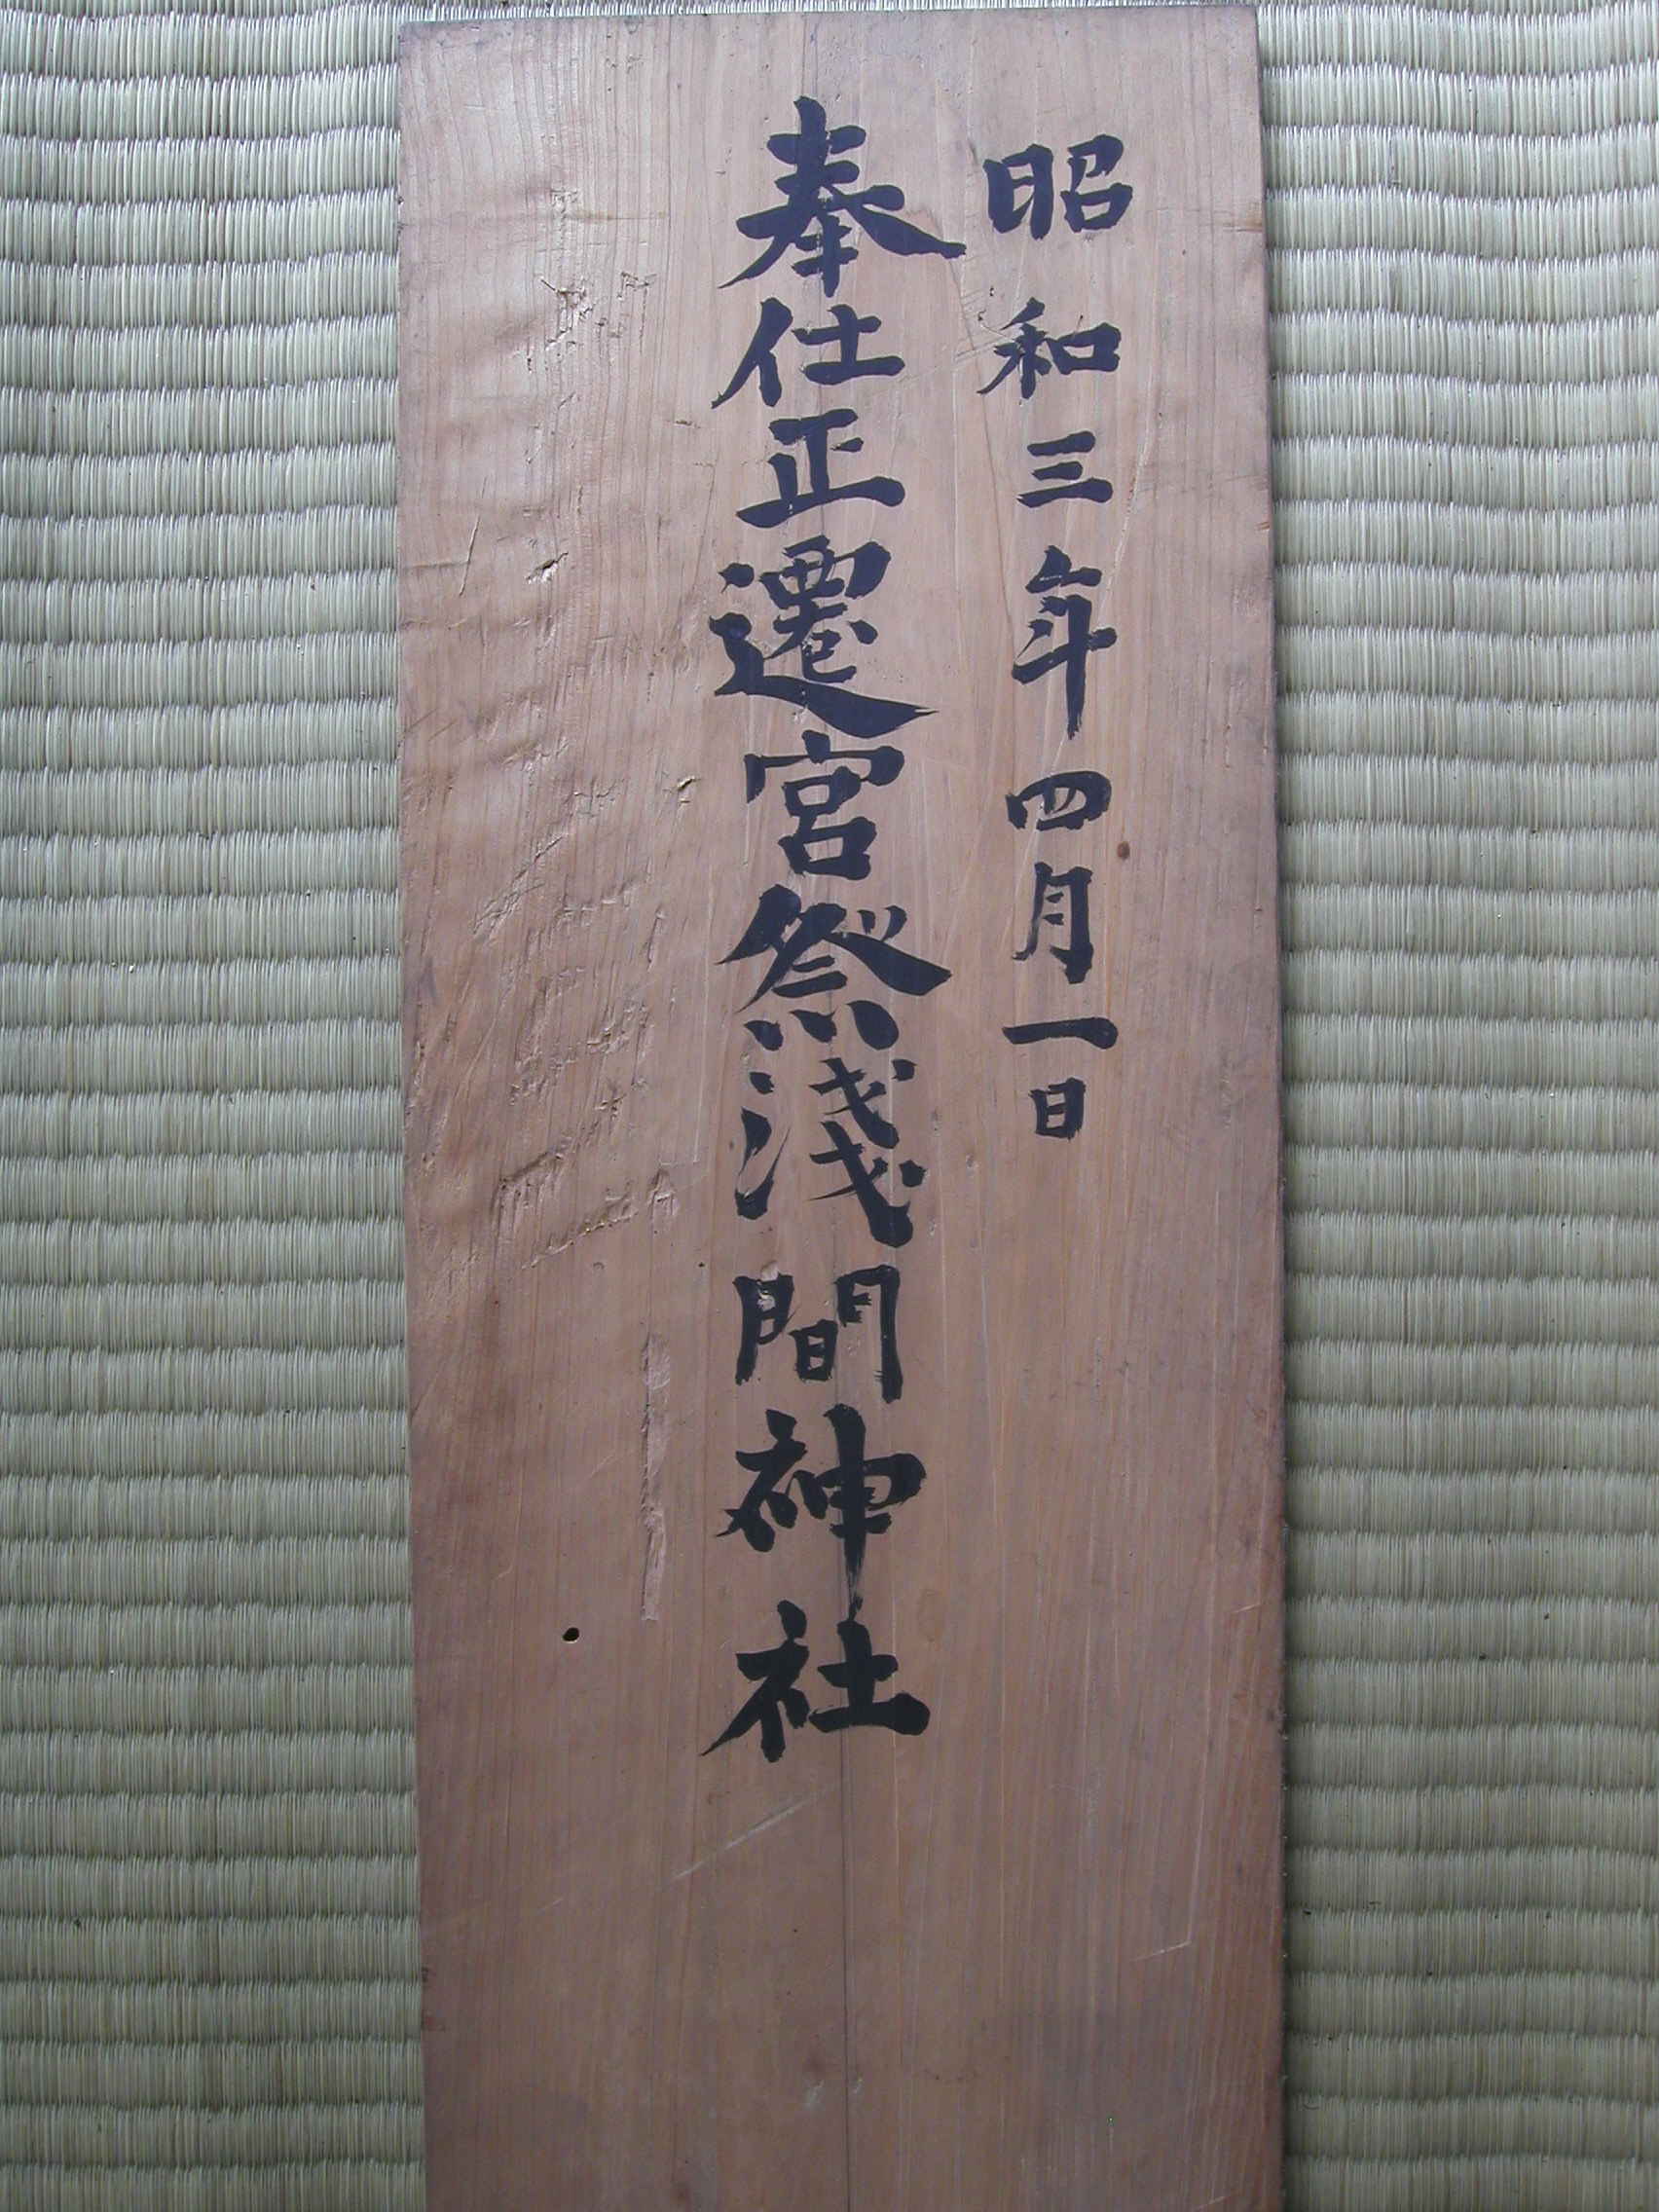 昭和三年四月一日
奉仕正遷宮祭淺間神社